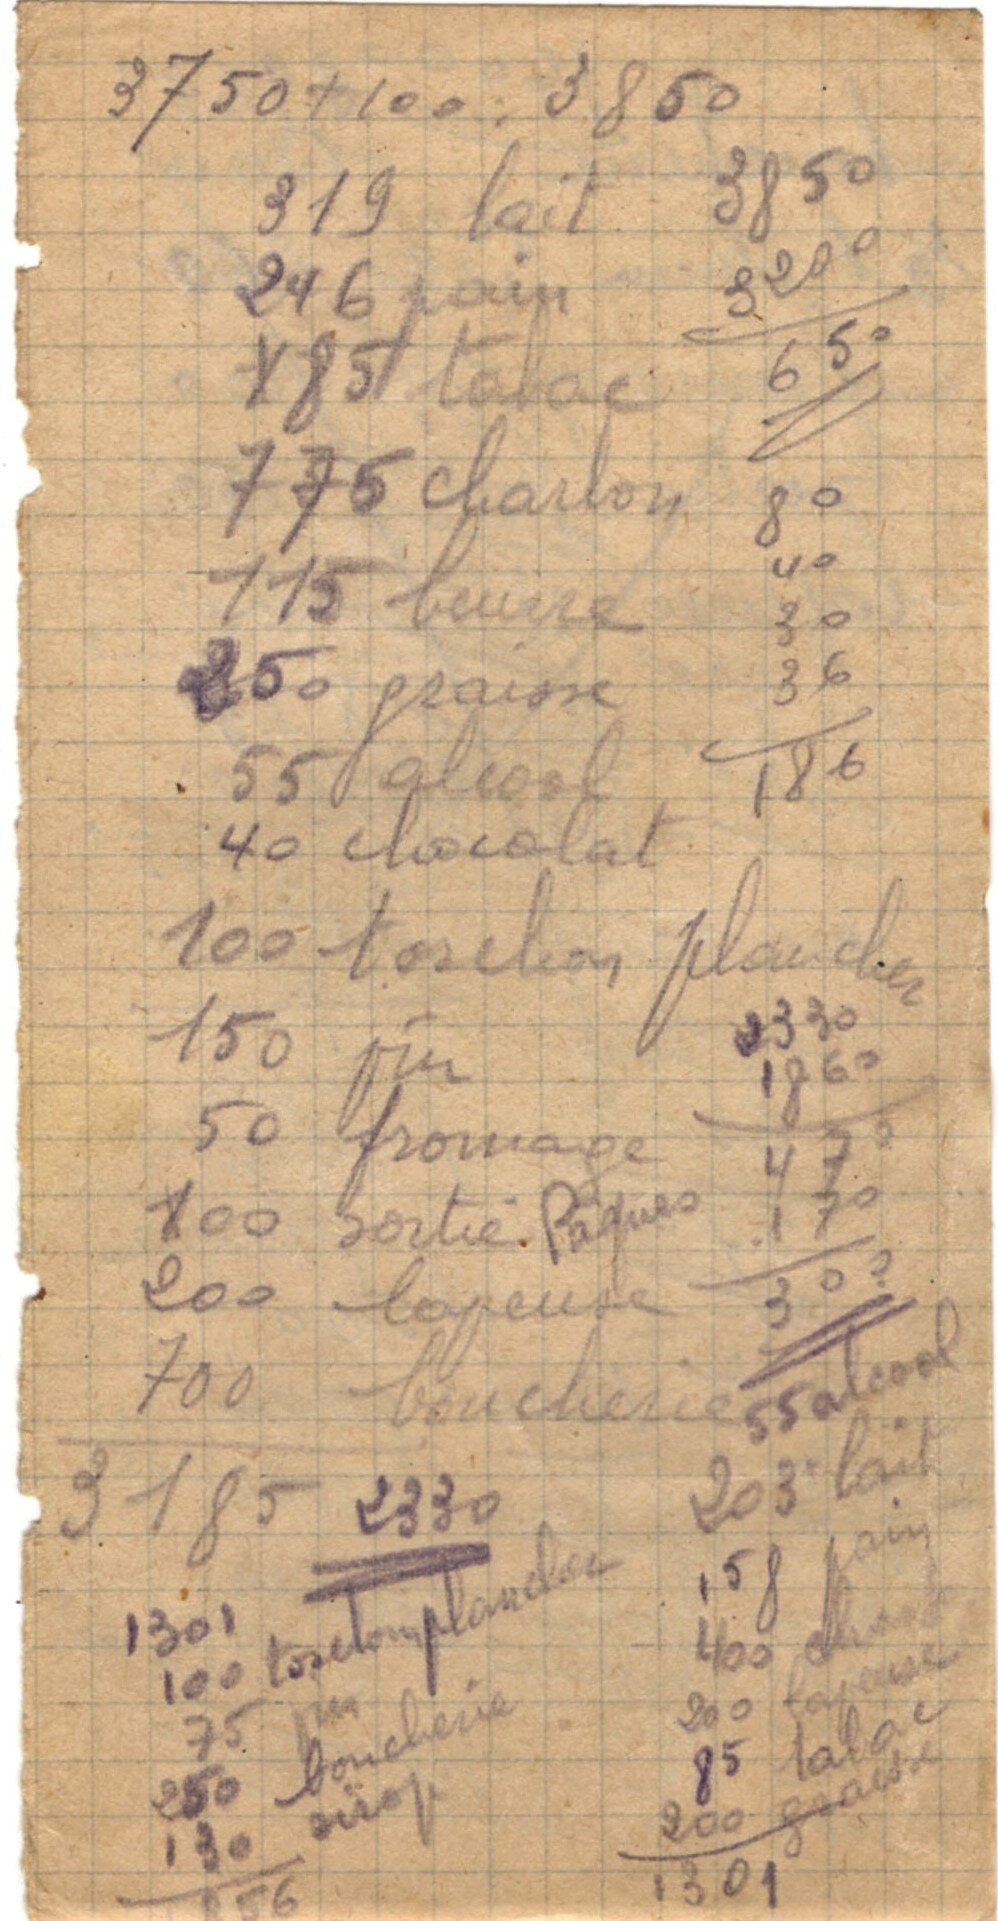 3750 + 100 : 3850
319 lait
246 pain
185 tabac
775 charbon
115 beurre
250 graisse
55 alcool
40 chocolat
100 torchon plancher
150 pin
50 fromage
100 sortie Pâques
200 lapeuse
700 boucherie
3185
2330
3850
3200
650
80
40
30
36
186
2330
1860
470
170
300
55 alcool
203 lait
158 pain
400
200 lapeuse
85 tabac
200 graisse
1301
1301
100 torchon plancher
75 pin
250 boucherie
130 sirop
1856